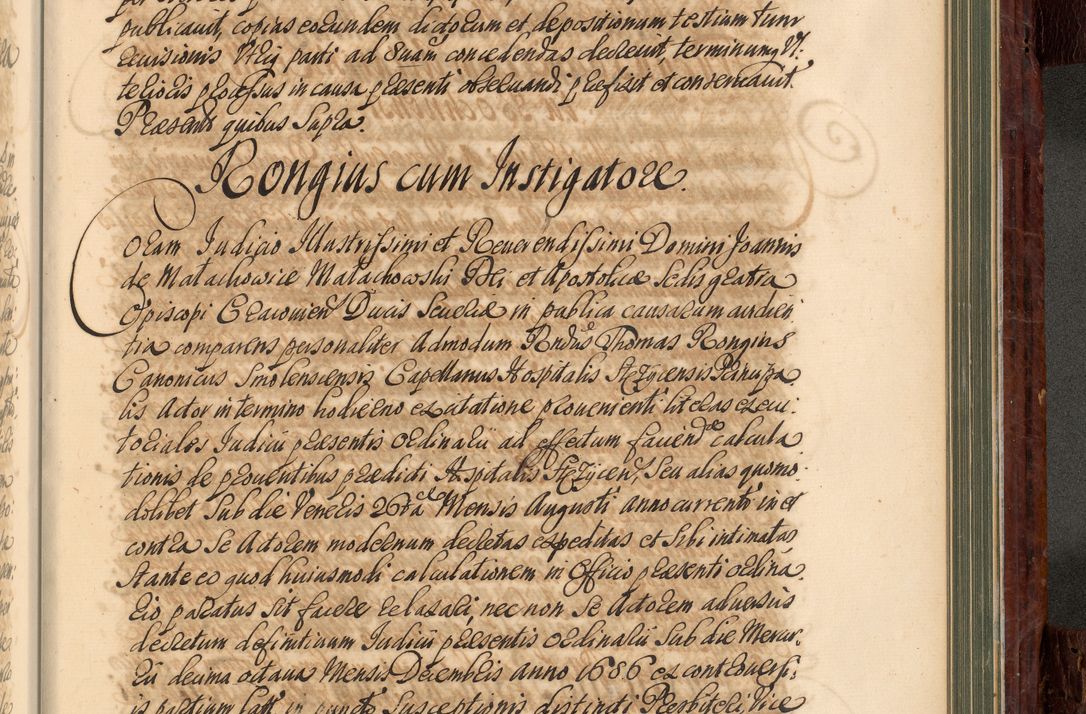 publicavit, copias eorundem dictorum et depositionum testium tum
revisionis Utriq parti ad Suam concedendas decrevit, terminumq Ul:
terioris processus in causa praesenti observandi praefixit et conservavit.
Praesend quibus Supra.
Rongius cum Instigatore.
Coram Iudicio Illustrissimi et Reverendissimi Domini Joannis
de Małachowice Małachowski Dei et Apostolicae Sedis gratia
Episcopi Cracovien Ducis Severiae in publica causarum audien
tia comparens personaliter Admodum Rndus Thomas Rongius
Canonicus Smolenscensis Capellanus Hospitalis Stezycensis Principa
lis Actor in termino hodierno ex citatione provenienti literas execu:
toriales Iudicii praesentis Ordinarii ad effectum faciendae calcula
tionis de proventibus praedicti Hospitalis Stezycen, Seu alias quomo
dolibet Sub die Veneris 26ta Mensis Augusti anno currenti in et
contra Se Actorem modernum decretas expeditas et Sibi intimatas
Stante eo quod huiusmodi calculationem in Officio praesenti ordina
rio paratus Sit facere relaxari, nec non Se Actorem adversus
decretum definitivum Iudicii praesentis Ordinarii Sub die Mercu:
rii decima octava Mensis Decembris anno 1686 ex controversi:
is partium lati in puncto Susceptionis distincti Presbiteri Vice